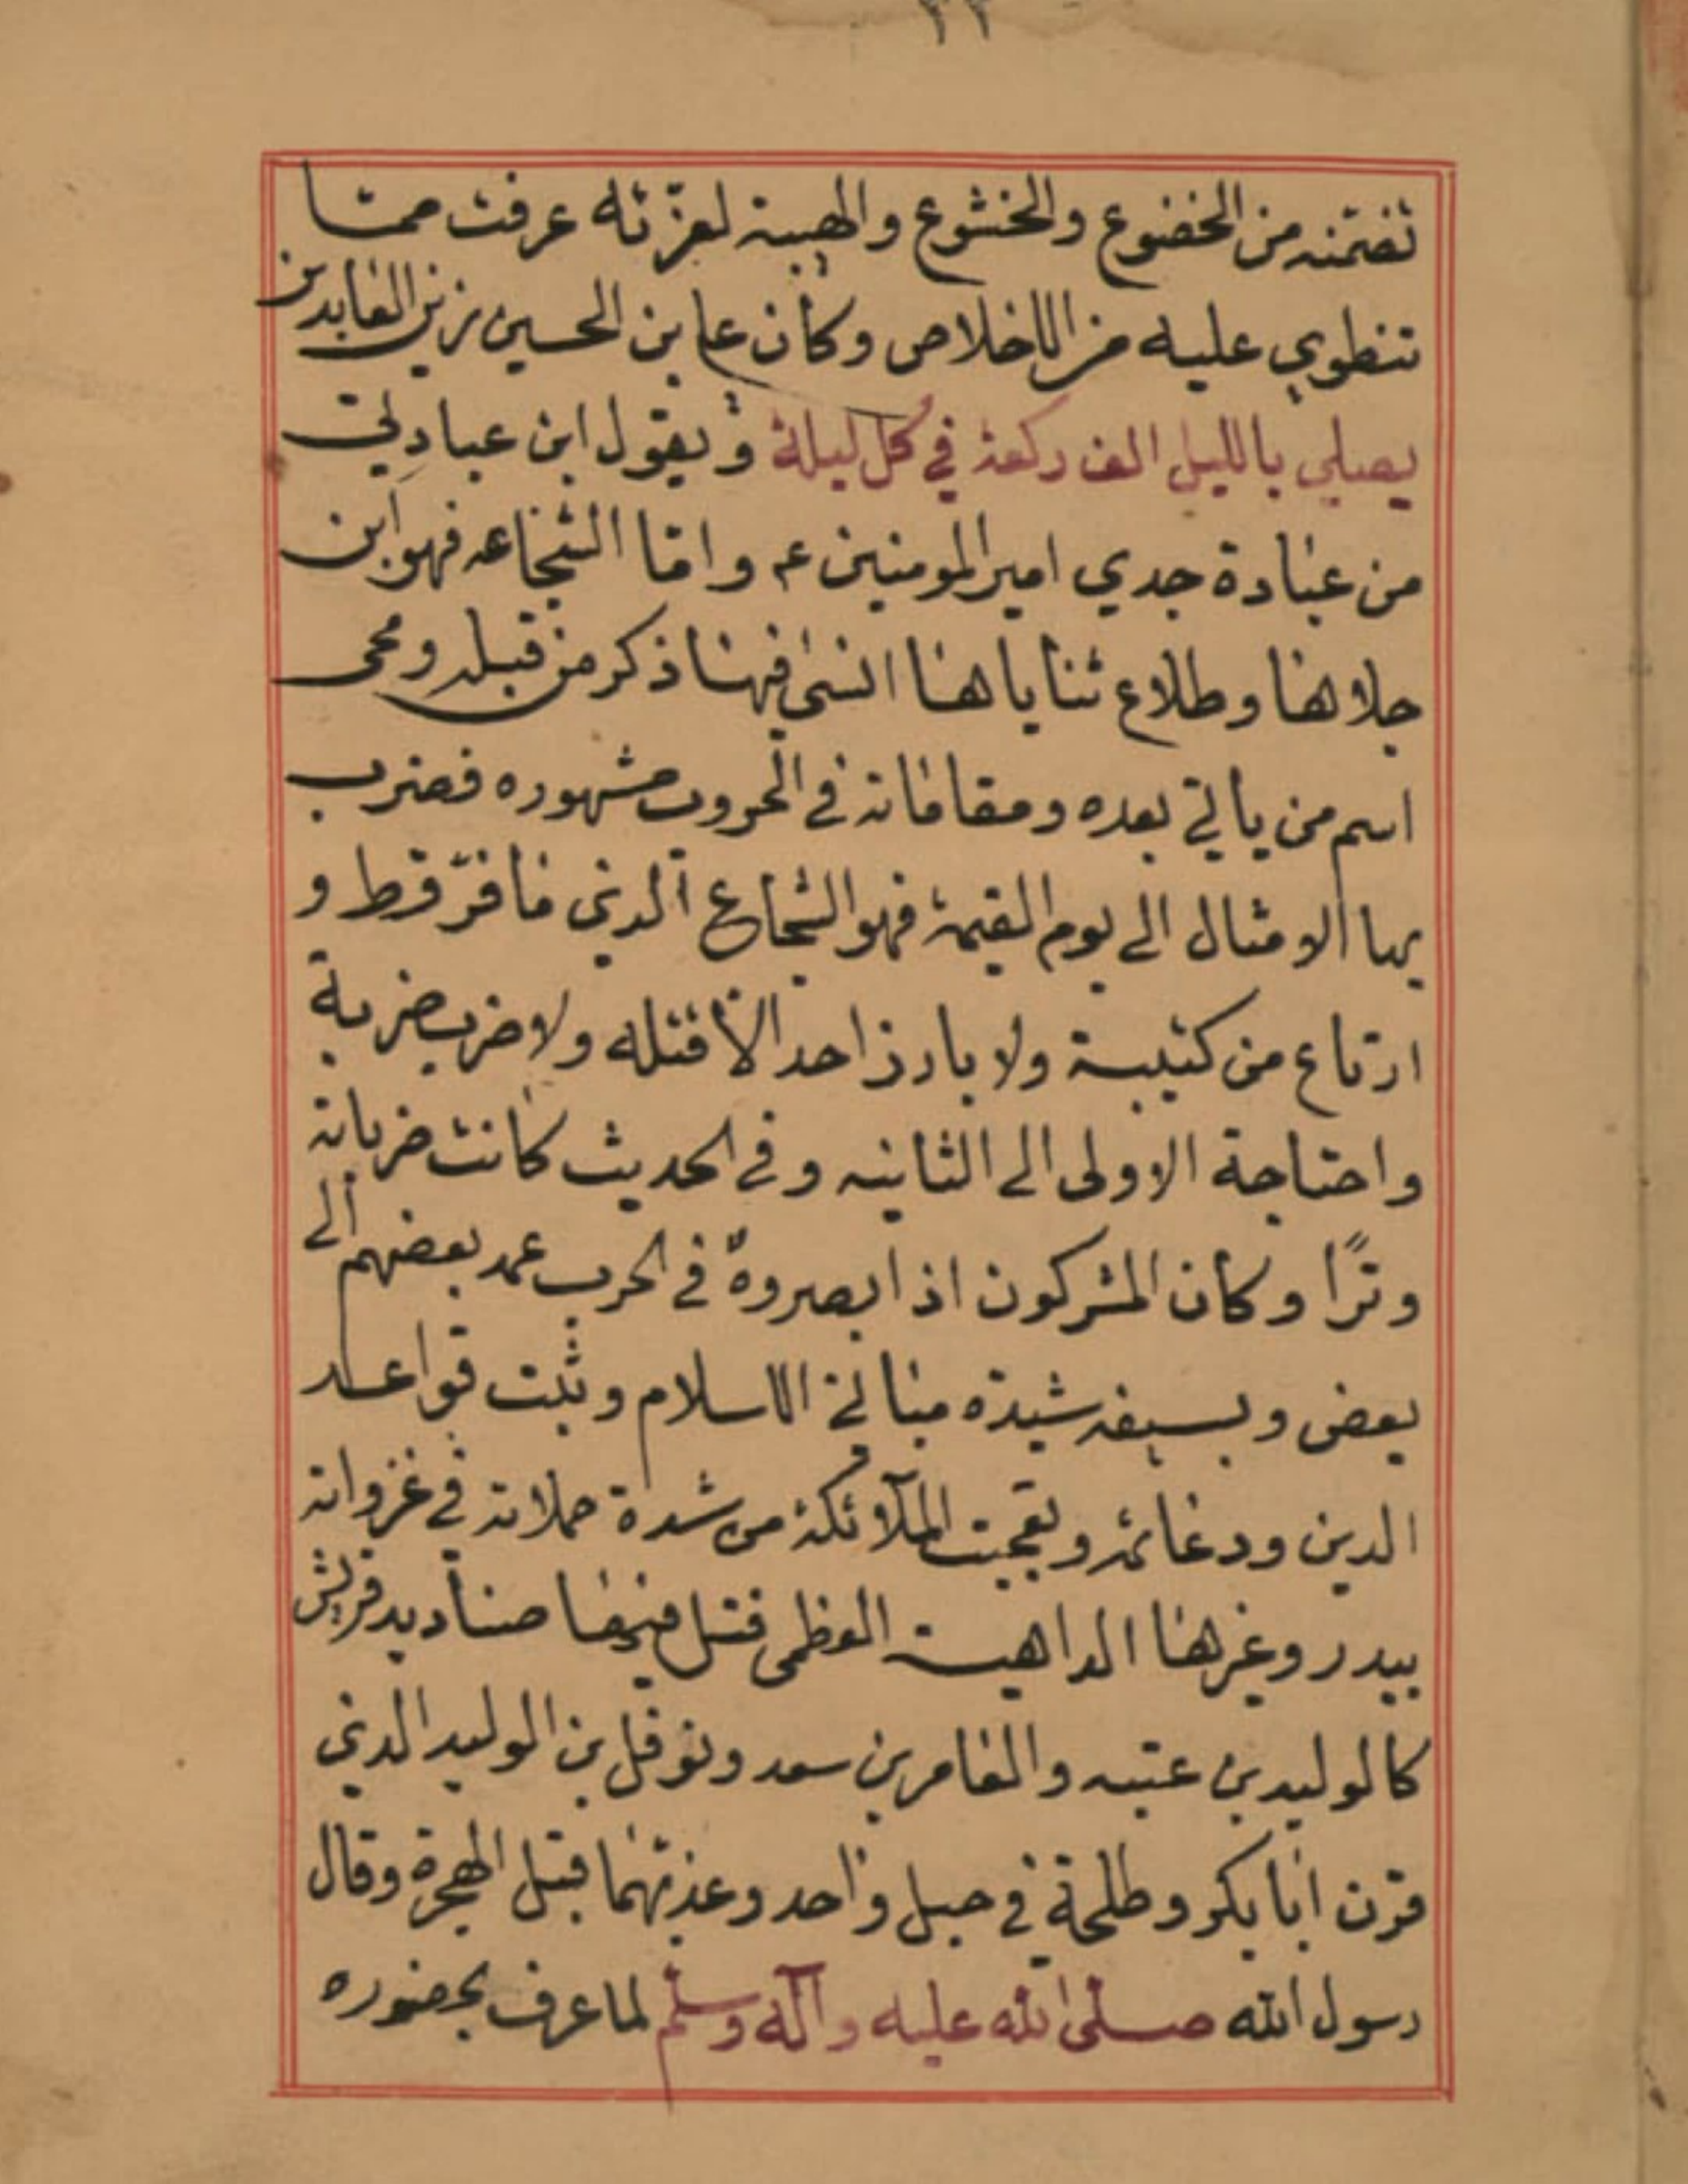 ٣٣
تضمنه من الخضوع والخشوع والهيبة لعزّته عرفت ممّا
تنطوي عليه من الاخلاص وكان علي بن الحسين زين العابدين
يصلي بالليل الف ركعة في كل ليلة ويقول اين عبادتي
من عبادة جدي امير المومنين ع وامّا الشجاعه فهو ابن
جلاها وطلاع ثناياها انسٰى فيها ذكر من قبله ومحى
اسم من ياتي بعده ومقاماته في الحروب مشهوره فضرب
بها الامثال الى يوم القيمة فهو الشجاع الذي ما فرّ قط و
ارتاع من كتيبة ولا بارز احد الّا قتله ولا ضرب ضربة
واحتاجة الاولى الى الثانيه وفي الحديث كانت ضرباته
وترًا وكان المشركون اذا ابصروهُ في الحرب عهد بعضهم الى
بعض وبسيفه شيدة مباني الاسلام وثبت قواعد
الدين ودعائمه وتعجبت الملآئكة من شدة حملاته في غزواته
ببدر وغيرها الداهية العظمى قتل فيها صناديد قريش
كالوليد بن عتبه والعامر بن سعد ونوفل بن الوليد الذي
قرن ابا بكر وطلحة في حبل واحد وعذبهما قبل الهجرة وقال
رسول الله صلى الله عليه وآله وسلم لما عرف بحضوره